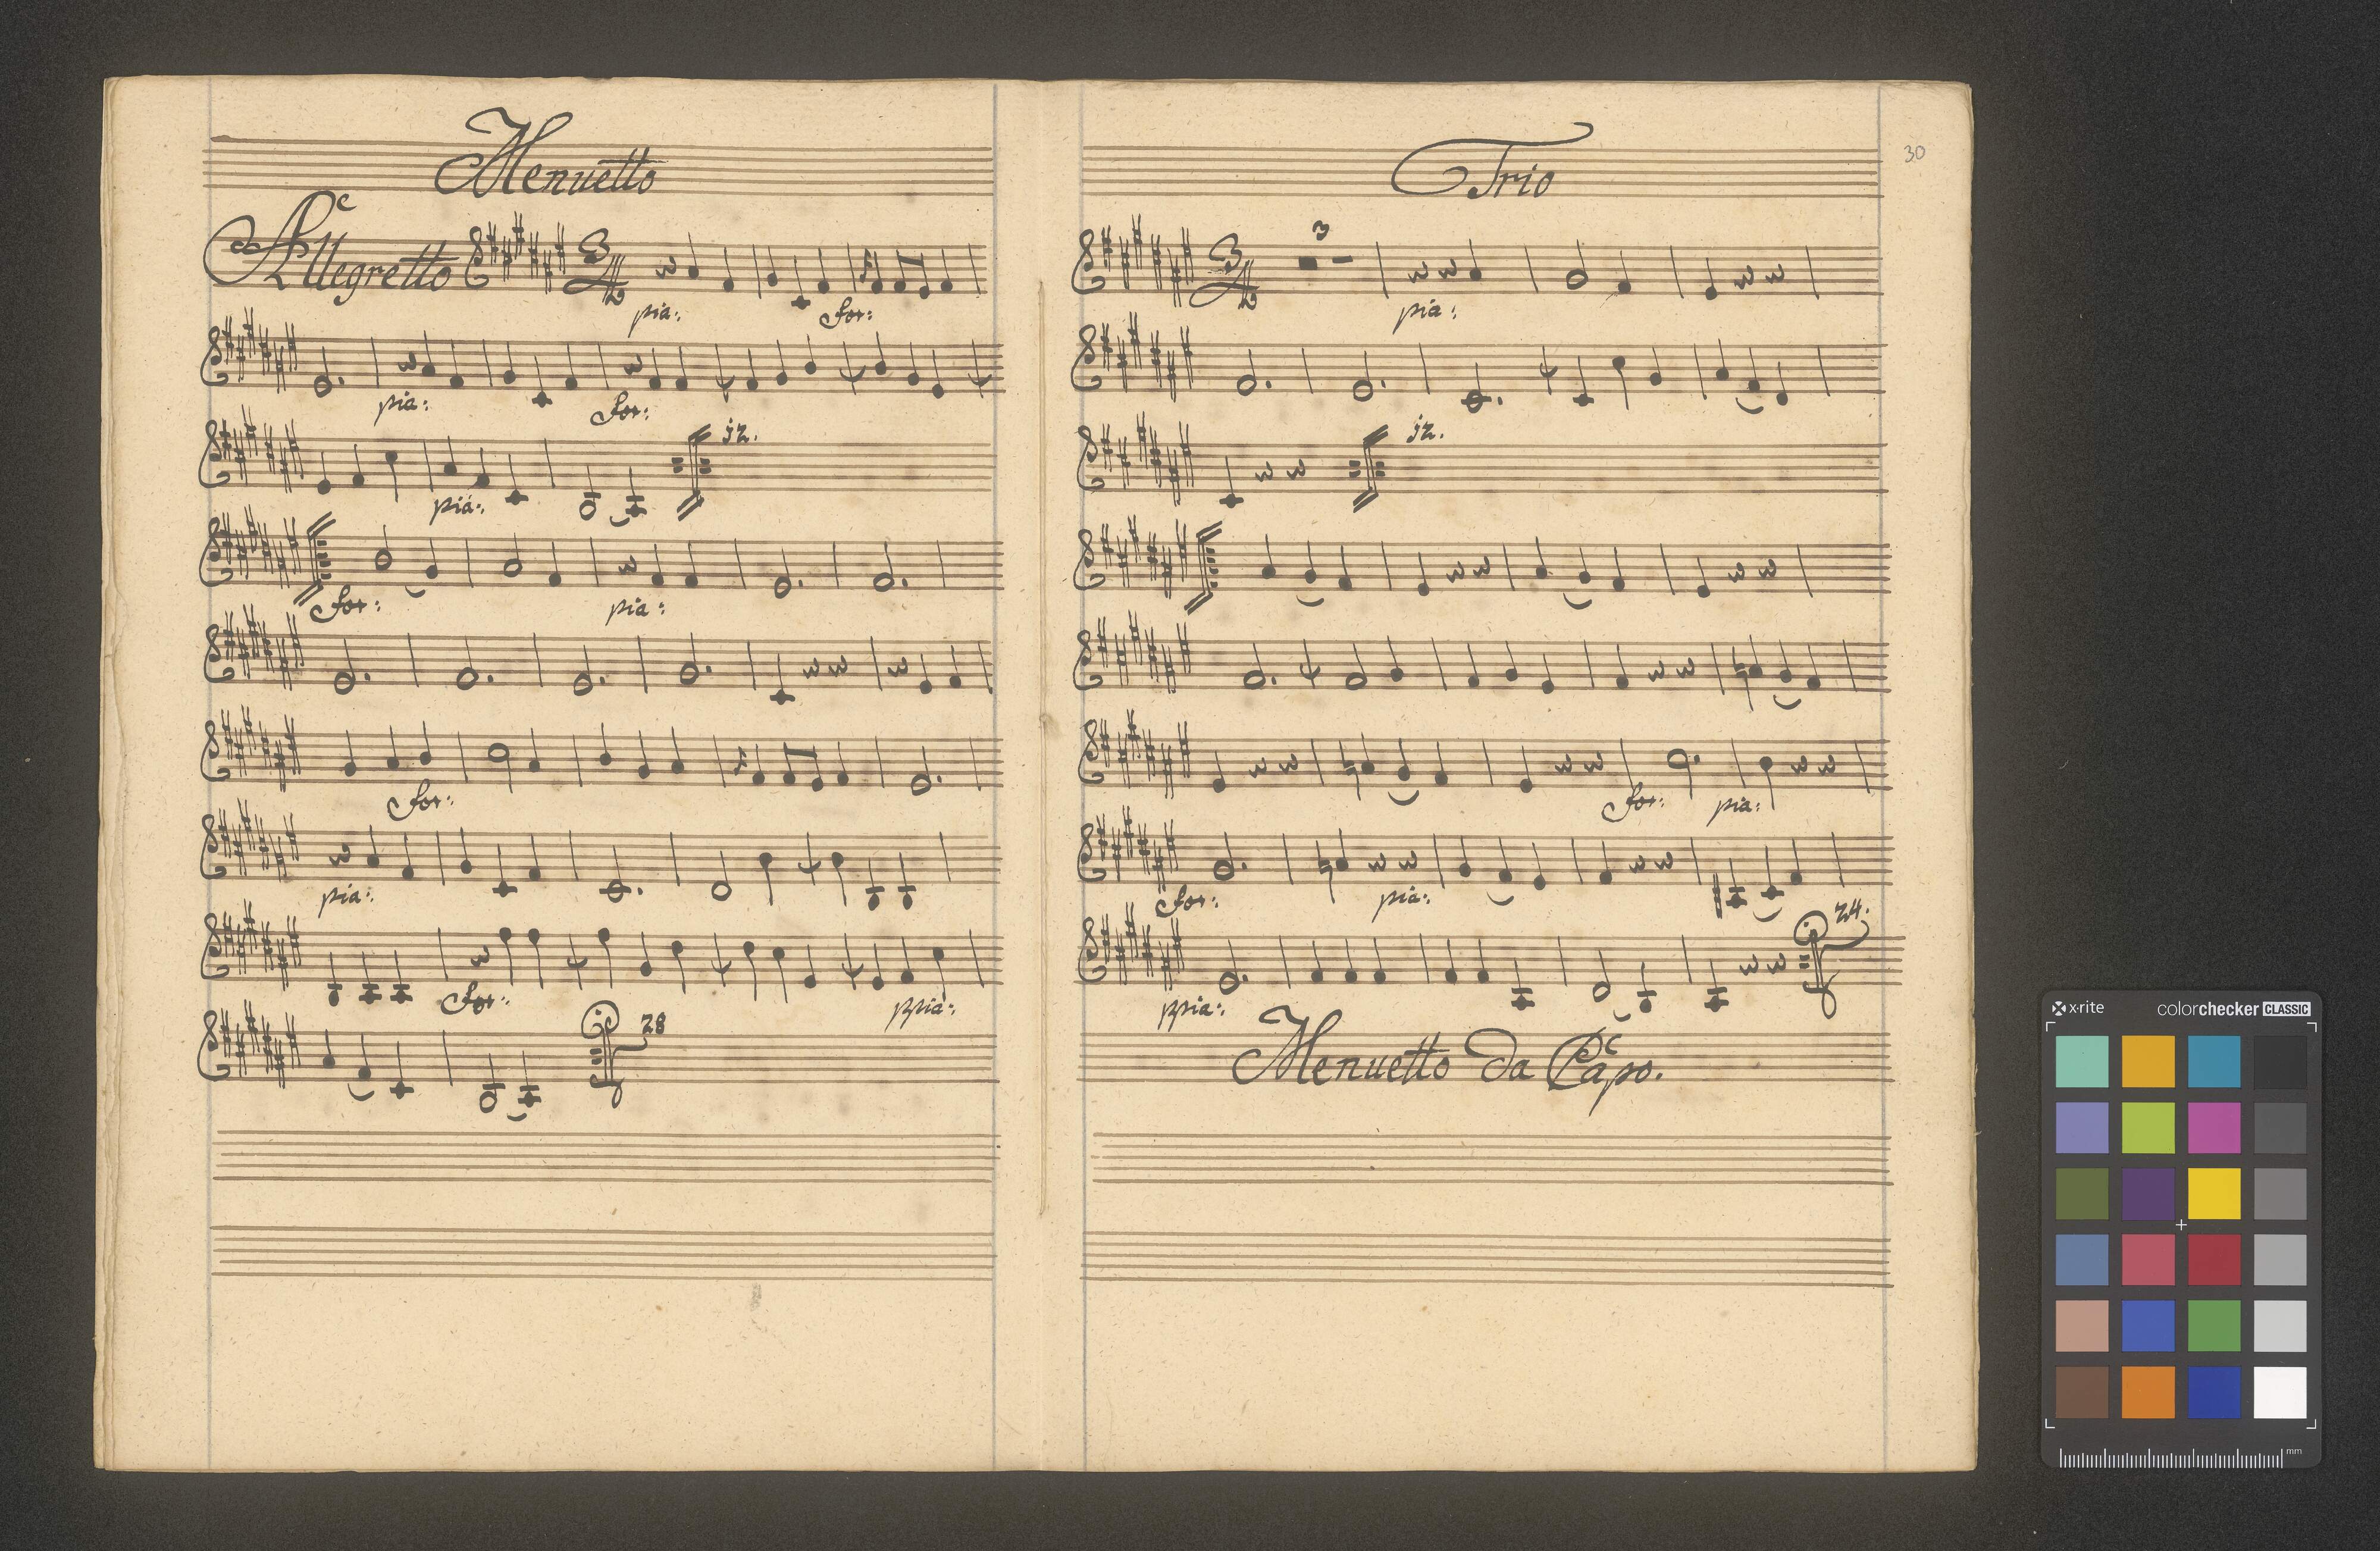 Menuetto
Allegretto
3 4
pia: for:
pia: for:
12.
pia:
for: pia:
for:
pia:
for: ppia:
28
Trio
30
3
3 4
pia:
12.
for: pia:
for: pia:
24.
ppia:
Menuetto Da Capo.
x·rite colorchecker CLASSIC
mm